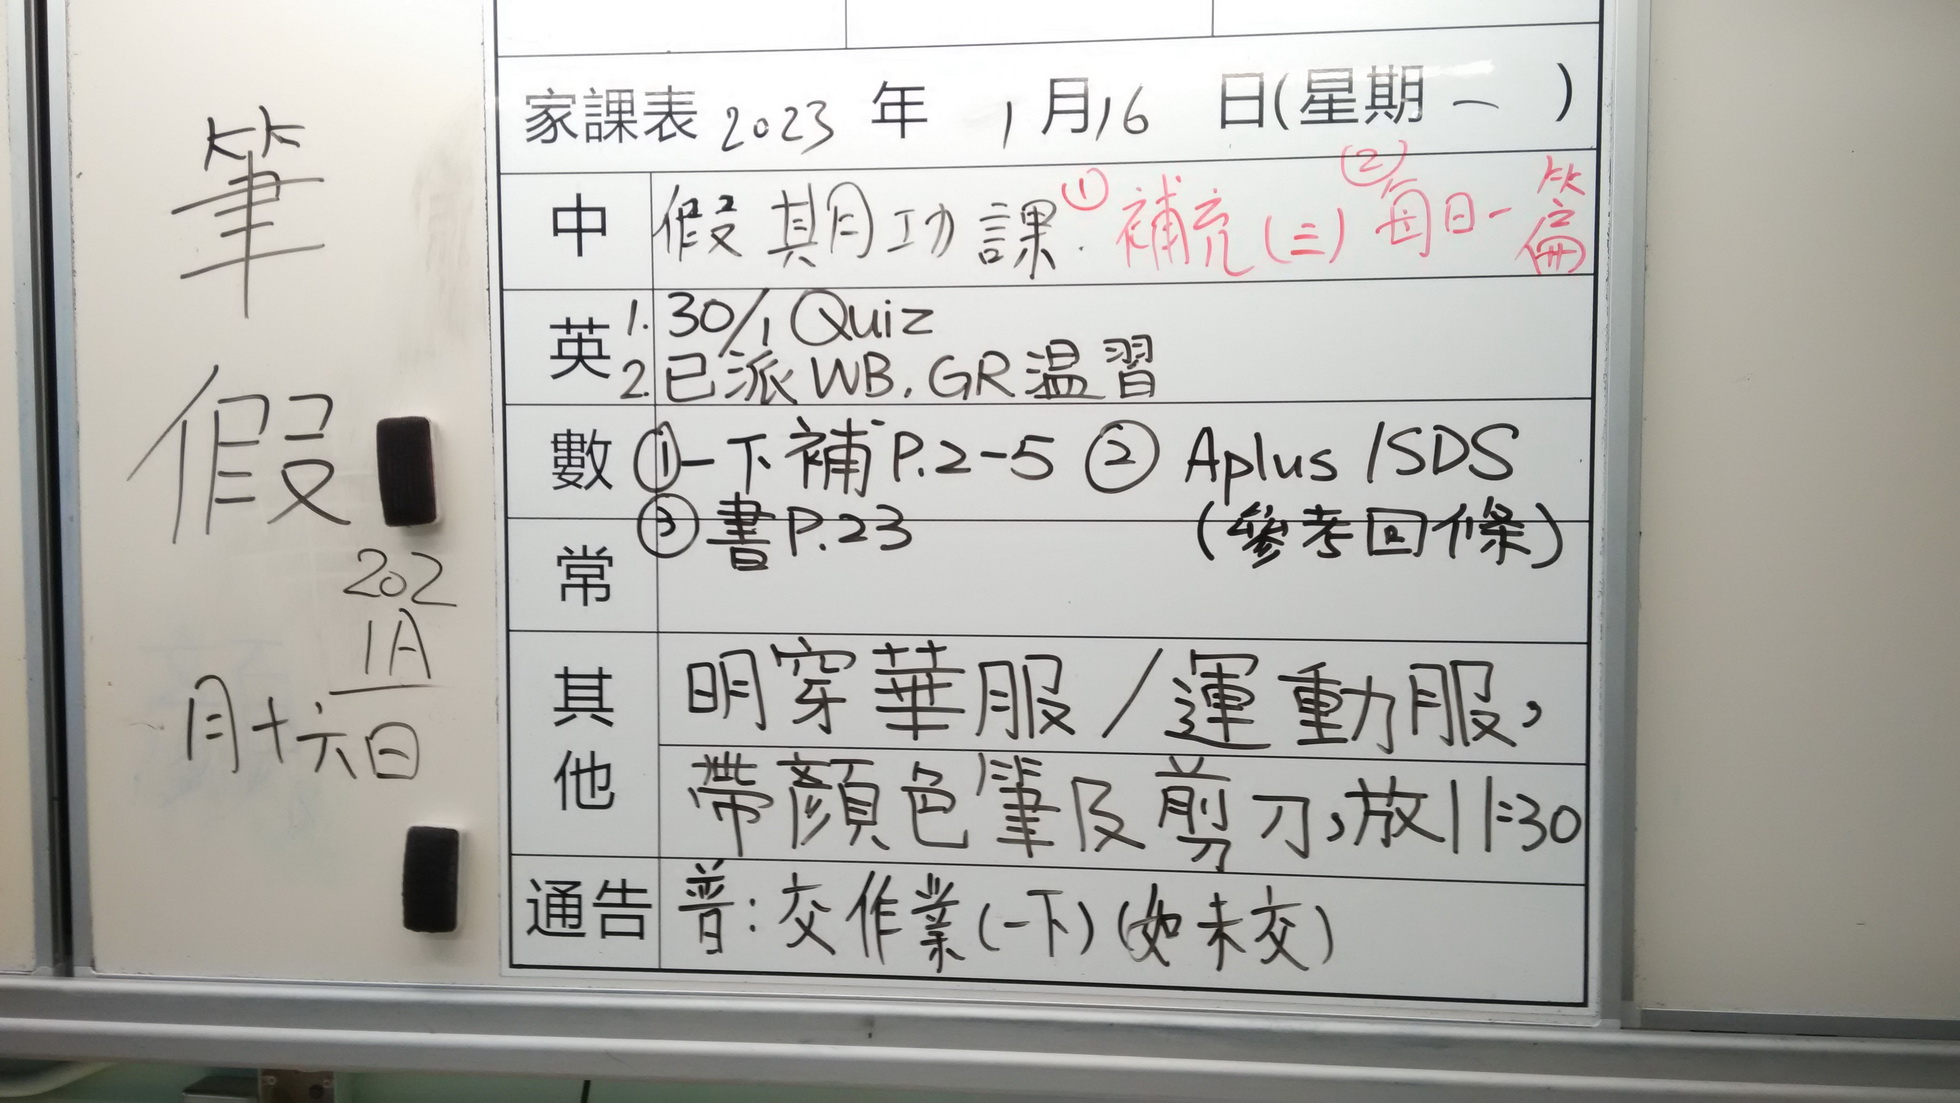 筆
假
202
1A
月十六日
家課表 2023 年 1月16 日(星期一)
中 假期功課. ①補充(三) ②每日一篇
英 1. 30/1 Quiz
2. 已派WB, GR温習
數 ①一下補P.2-5 ② Aplus /SDS
③書P.23 (參考回條)
常
其他 明穿華服/運動服,
帶顏色筆及剪刀,放11:30
通告 普:交作業(一下)(如未交)